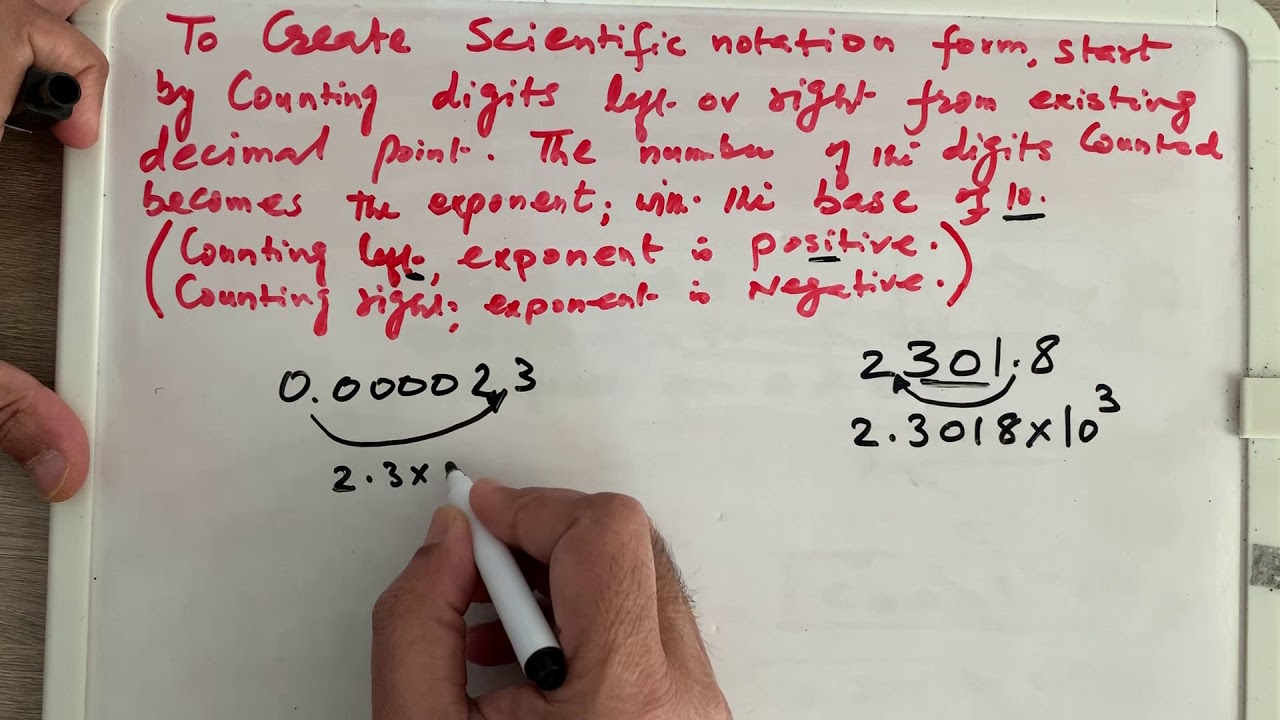 To Create Scientific notation form, start
by Counting digits left or right from existing
decimal point. The number of the digits Counted
becomes the exponent; with the base of 10.
(Counting left, exponent is positive.
Counting right; exponent is Negative.)
0.000023
2301.8
2.3018x10^3
2.3x